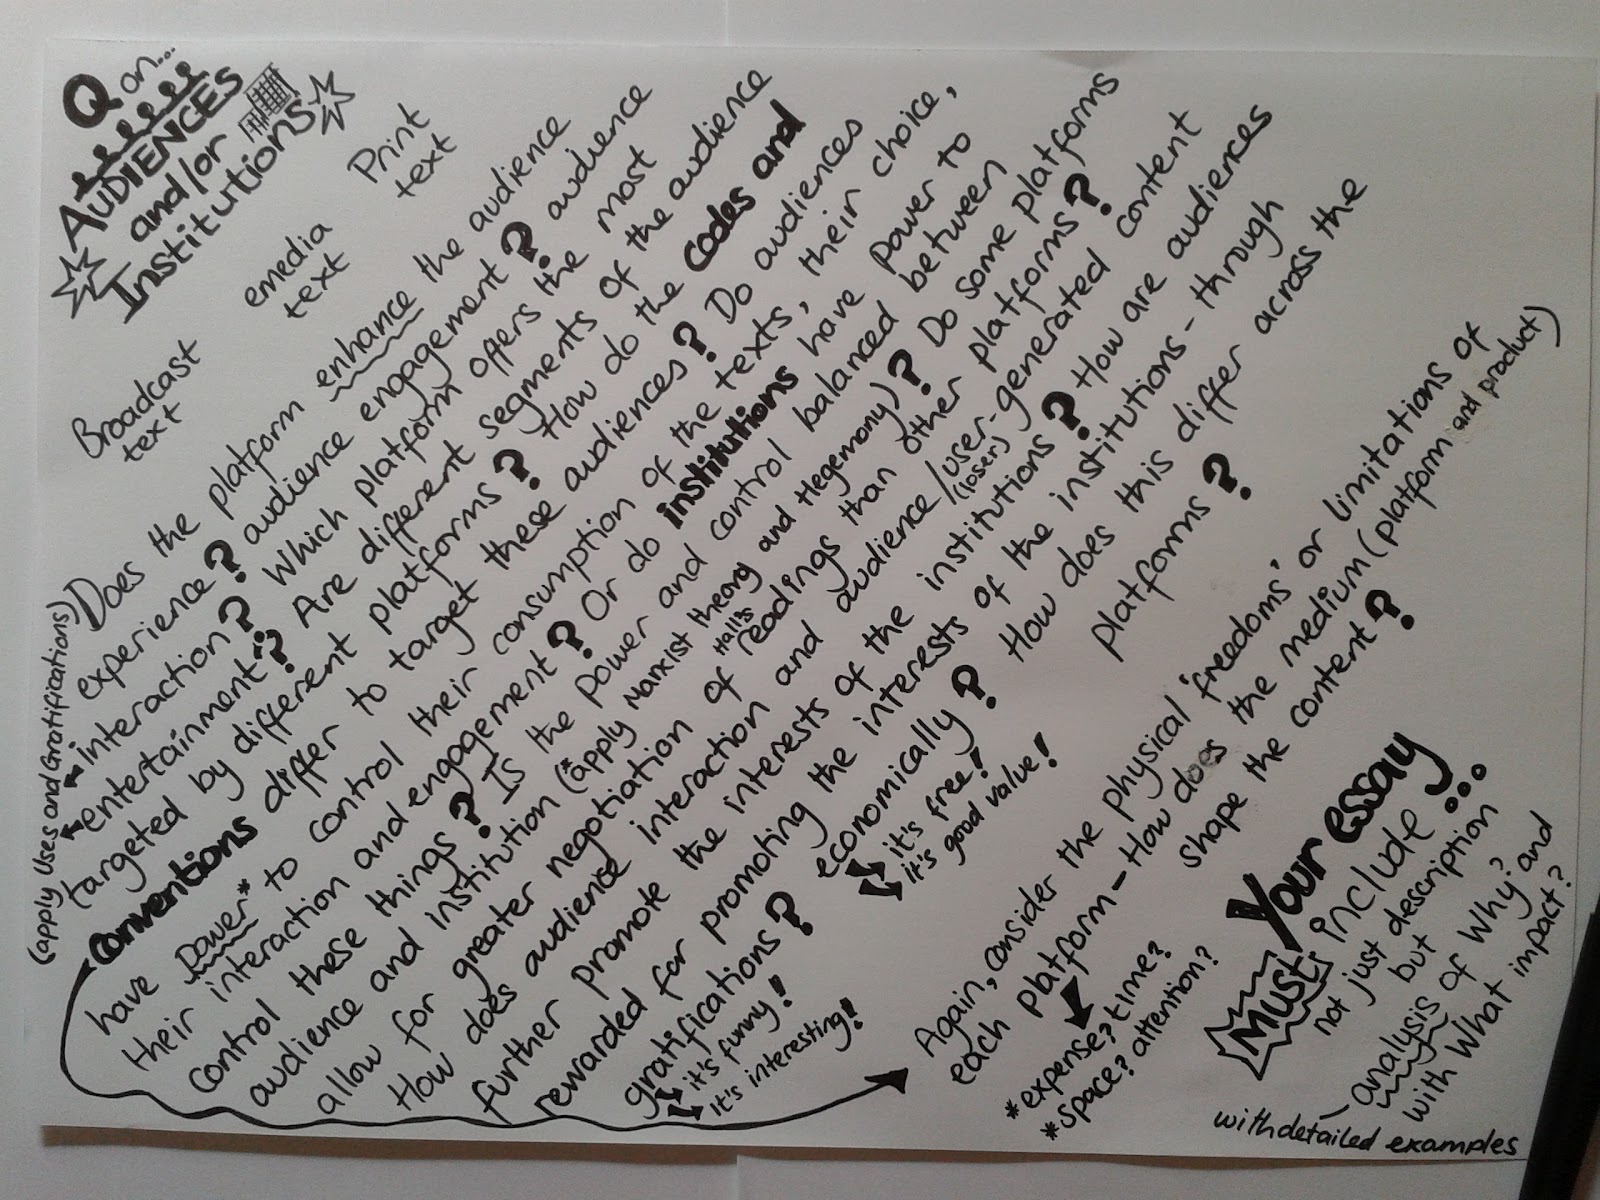 Q on...
AUDIENCES
and/or
Institutions
Broadcast
text
emedia
text
Print
text
(apply Uses and Gratifications)
Does the platform enhance the audience
experience? audience engagement? audience
interaction? Which platform offers the most
entertainment? Are different segments of the audience
targeted by different platforms? How do the codes and
conventions differ to target these audiences? Do audiences
have power* to control their consumption of the texts, their choice,
their interaction and engagement? Or do institutions have power to
control these things? Is the power and control balanced between
audience and institution (*apply Marxist theory and Hegemony)? Do some platforms
allow for greater negotiation of Hall's readings than other platforms?
How does audience interaction and audience/user-generated content
(loser)
further promote the interests of the institutions? How are audiences
rewarded for promoting the interests of the institutions - through
gratifications? economically? How does this differ across the
platforms?
it's funny!
it's interesting!
it's free!
it's good value!
Again, consider the physical 'freedoms' or limitations of
each platform - How does the medium (platform and product)
shape the content?
*expense? time?
*space? attention?
Your essay
Must include...
not just description
but
- analysis of Why? and
with What impact?
with detailed examples